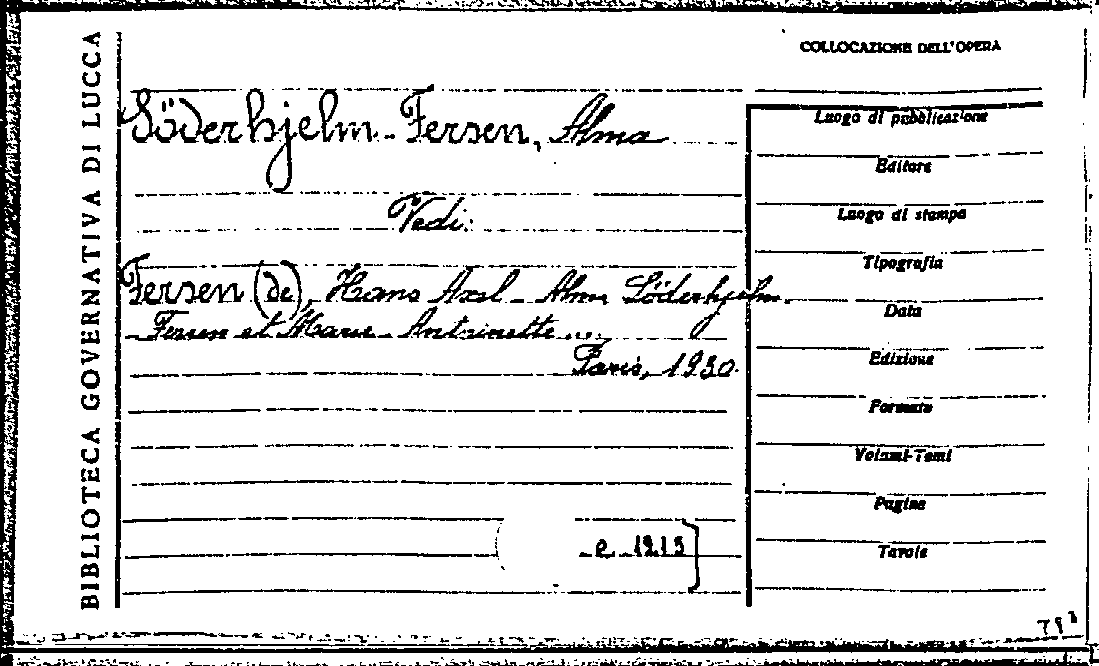 BIBLIOTECA GOVERNATIVA DI LUCCA
COLLOCAZIONE DELL'OPERA
Söderhjelm-Fersen, Alma
Vedi:
Fersen (de), Hans Axel - Alma Söderhjelm.
- Fersen et Marie-Antoinette ...
Paris, 1930.
Luogo di pubblicazione
Editore
Luogo di stampa
Tipografia
Data
Edizione
Formato
Volumi-Tomi
Pagine
Tavole